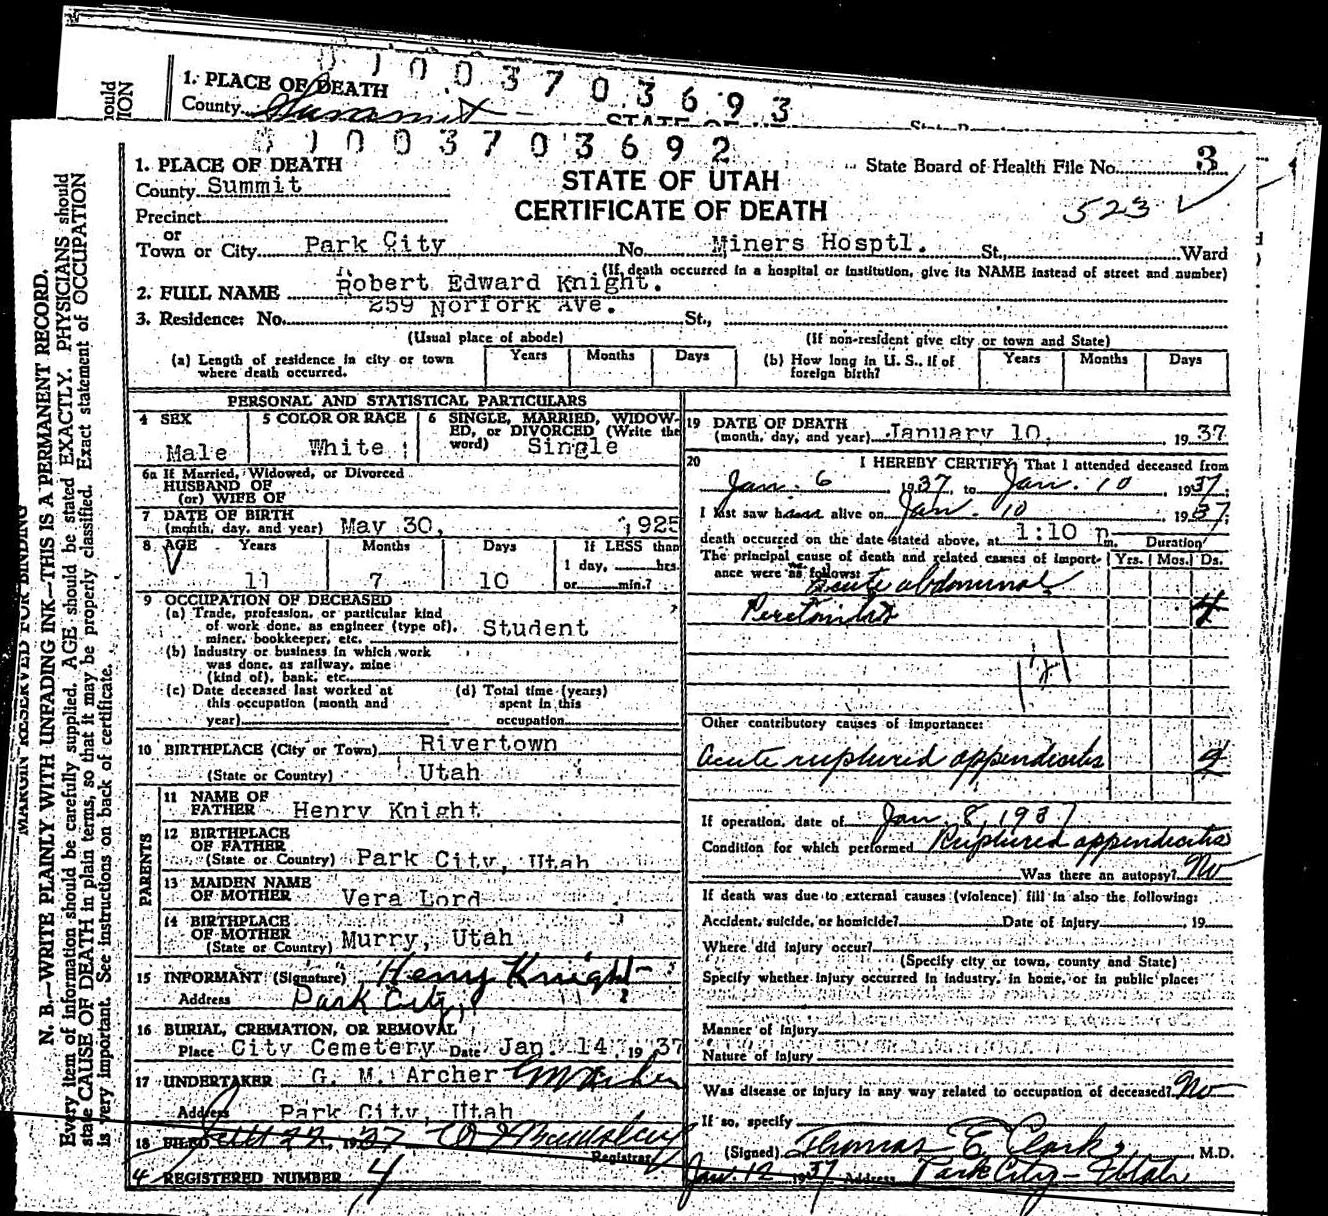 0 1 0 0 3 7 0 3 6 9 3
1. PLACE OF DEATH
County Summit
0 1 0 0 3 7 0 3 6 9 2
1. PLACE OF DEATH
State Board of Health File No. 3
County Summit
STATE OF UTAH
523 ✓
Precinct
CERTIFICATE OF DEATH
or
Town or City Park City No. Miners Hosptl. St., Ward
(If death occurred in a hospital or institution, give its NAME instead of street and number)
2. FULL NAME Robert Edward Knight.
3. Residence: No. 259 Norfork Ave. St.,
(Usual place of abode) (If non-resident give city or town and State)
(a) Length of residence in city or town where death occurred. Years Months Days (b) How long in U. S., if of foreign birth? Years Months Days
MARGIN RESERVED FOR BINDING
N. B.—WRITE PLAINLY WITH UNFADING INK—THIS IS A PERMANENT RECORD.
Every item of information should be carefully supplied. AGE should be stated EXACTLY. PHYSICIANS should
state CAUSE OF DEATH in plain terms, so that it may be properly classified. Exact statement of OCCUPATION
is very important. See instructions on back of certificate.
PERSONAL AND STATISTICAL PARTICULARS
4 SEX 5 COLOR OR RACE 6 SINGLE, MARRIED, WIDOW-
ED, or DIVORCED (Write the
word) Single
Male White
6a If Married, Widowed, or Divorced
HUSBAND OF
(or) WIFE OF
7 DATE OF BIRTH
(month, day, and year) May 30, 1925
8 AGE Years Months Days If LESS than
1 day, hrs.
11 7 10 or min.?
9 OCCUPATION OF DECEASED
(a) Trade, profession, or particular kind
of work done, as engineer (type of), Student
miner, bookkeeper, etc.
(b) Industry or business in which work
was done, as railway, mine
(kind of), bank, etc.
(c) Date deceased last worked at (d) Total time (years)
this occupation (month and spent in this
year) occupation
10 BIRTHPLACE (City or Town) Rivertown
(State or Country) Utah
PARENTS
11 NAME OF
FATHER Henry Knight
12 BIRTHPLACE
OF FATHER
(State or Country) Park City, Utah
13 MAIDEN NAME
OF MOTHER Vera Lord
14 BIRTHPLACE
OF MOTHER
(State or Country) Murry, Utah
15 INFORMANT (Signature) Henry Knight
Address Park City,
16 BURIAL, CREMATION, OR REMOVAL
Place City Cemetery Date Jan. 14, 1937
17 UNDERTAKER G. M. Archer GM Archer
Address Park City, Utah
18 FILED 1937
Registrar
4 REGISTERED NUMBER 4
19 DATE OF DEATH
(month, day, and year) January 10, 1937
20 I HEREBY CERTIFY, That I attended deceased from
Jan. 6, 1937, to Jan. 10, 1937;
I last saw h alive on Jan. 10, 1937;
death occurred on the date stated above, at 1:10 p.m. Duration
The principal cause of death and related causes of import- Yrs. Mos. Ds.
ance were as follows: Acute abdominal
Peretonitis 4
Other contributory causes of importance:
Acute ruptured appendicitis 4
If operation, date of Jan. 8, 1937
Condition for which performed Ruptured appendicitis
Was there an autopsy? No
If death was due to external causes (violence) fill in also the following:
Accident, suicide, or homicide? Date of injury , 19
Where did injury occur?
(Specify city or town, county and State)
Specify whether injury occurred in industry, in home, or in public place:
Manner of injury
Nature of injury
Was disease or injury in any way related to occupation of deceased? No
If so, specify
(Signed) Thomas E Clark, M.D.
Jan. 12 1937 Address Park City - Utah